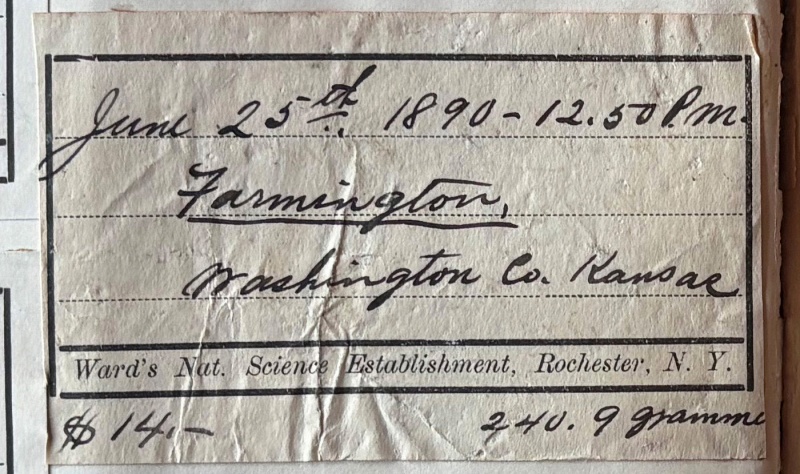 June 25th. 1890 - 12.50 P.m.
Farmington,
Washington Co. Kansas
Ward's Nat. Science Establishment, Rochester, N. Y.
$ 14.- 240.9 gramme